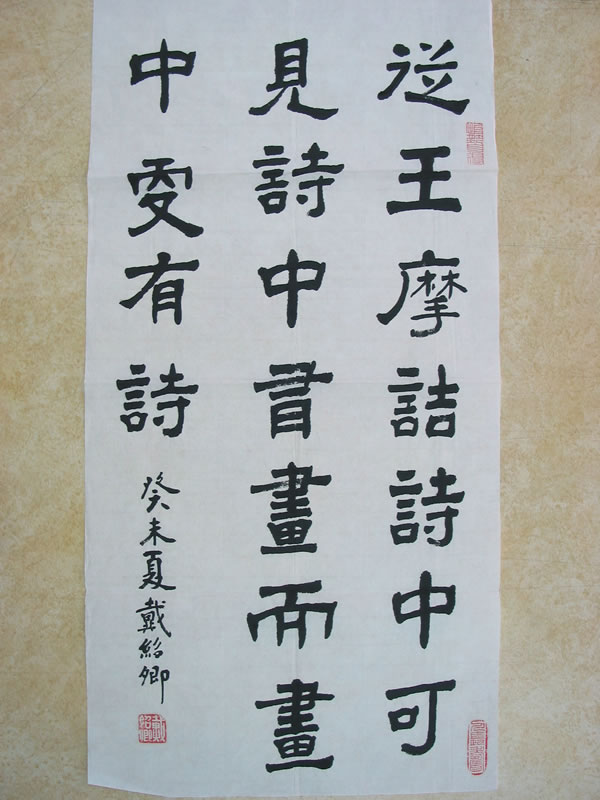 從王摩詰詩中可
見詩中書畫而畫
中更有詩
癸未夏戴紹卿
戴紹卿